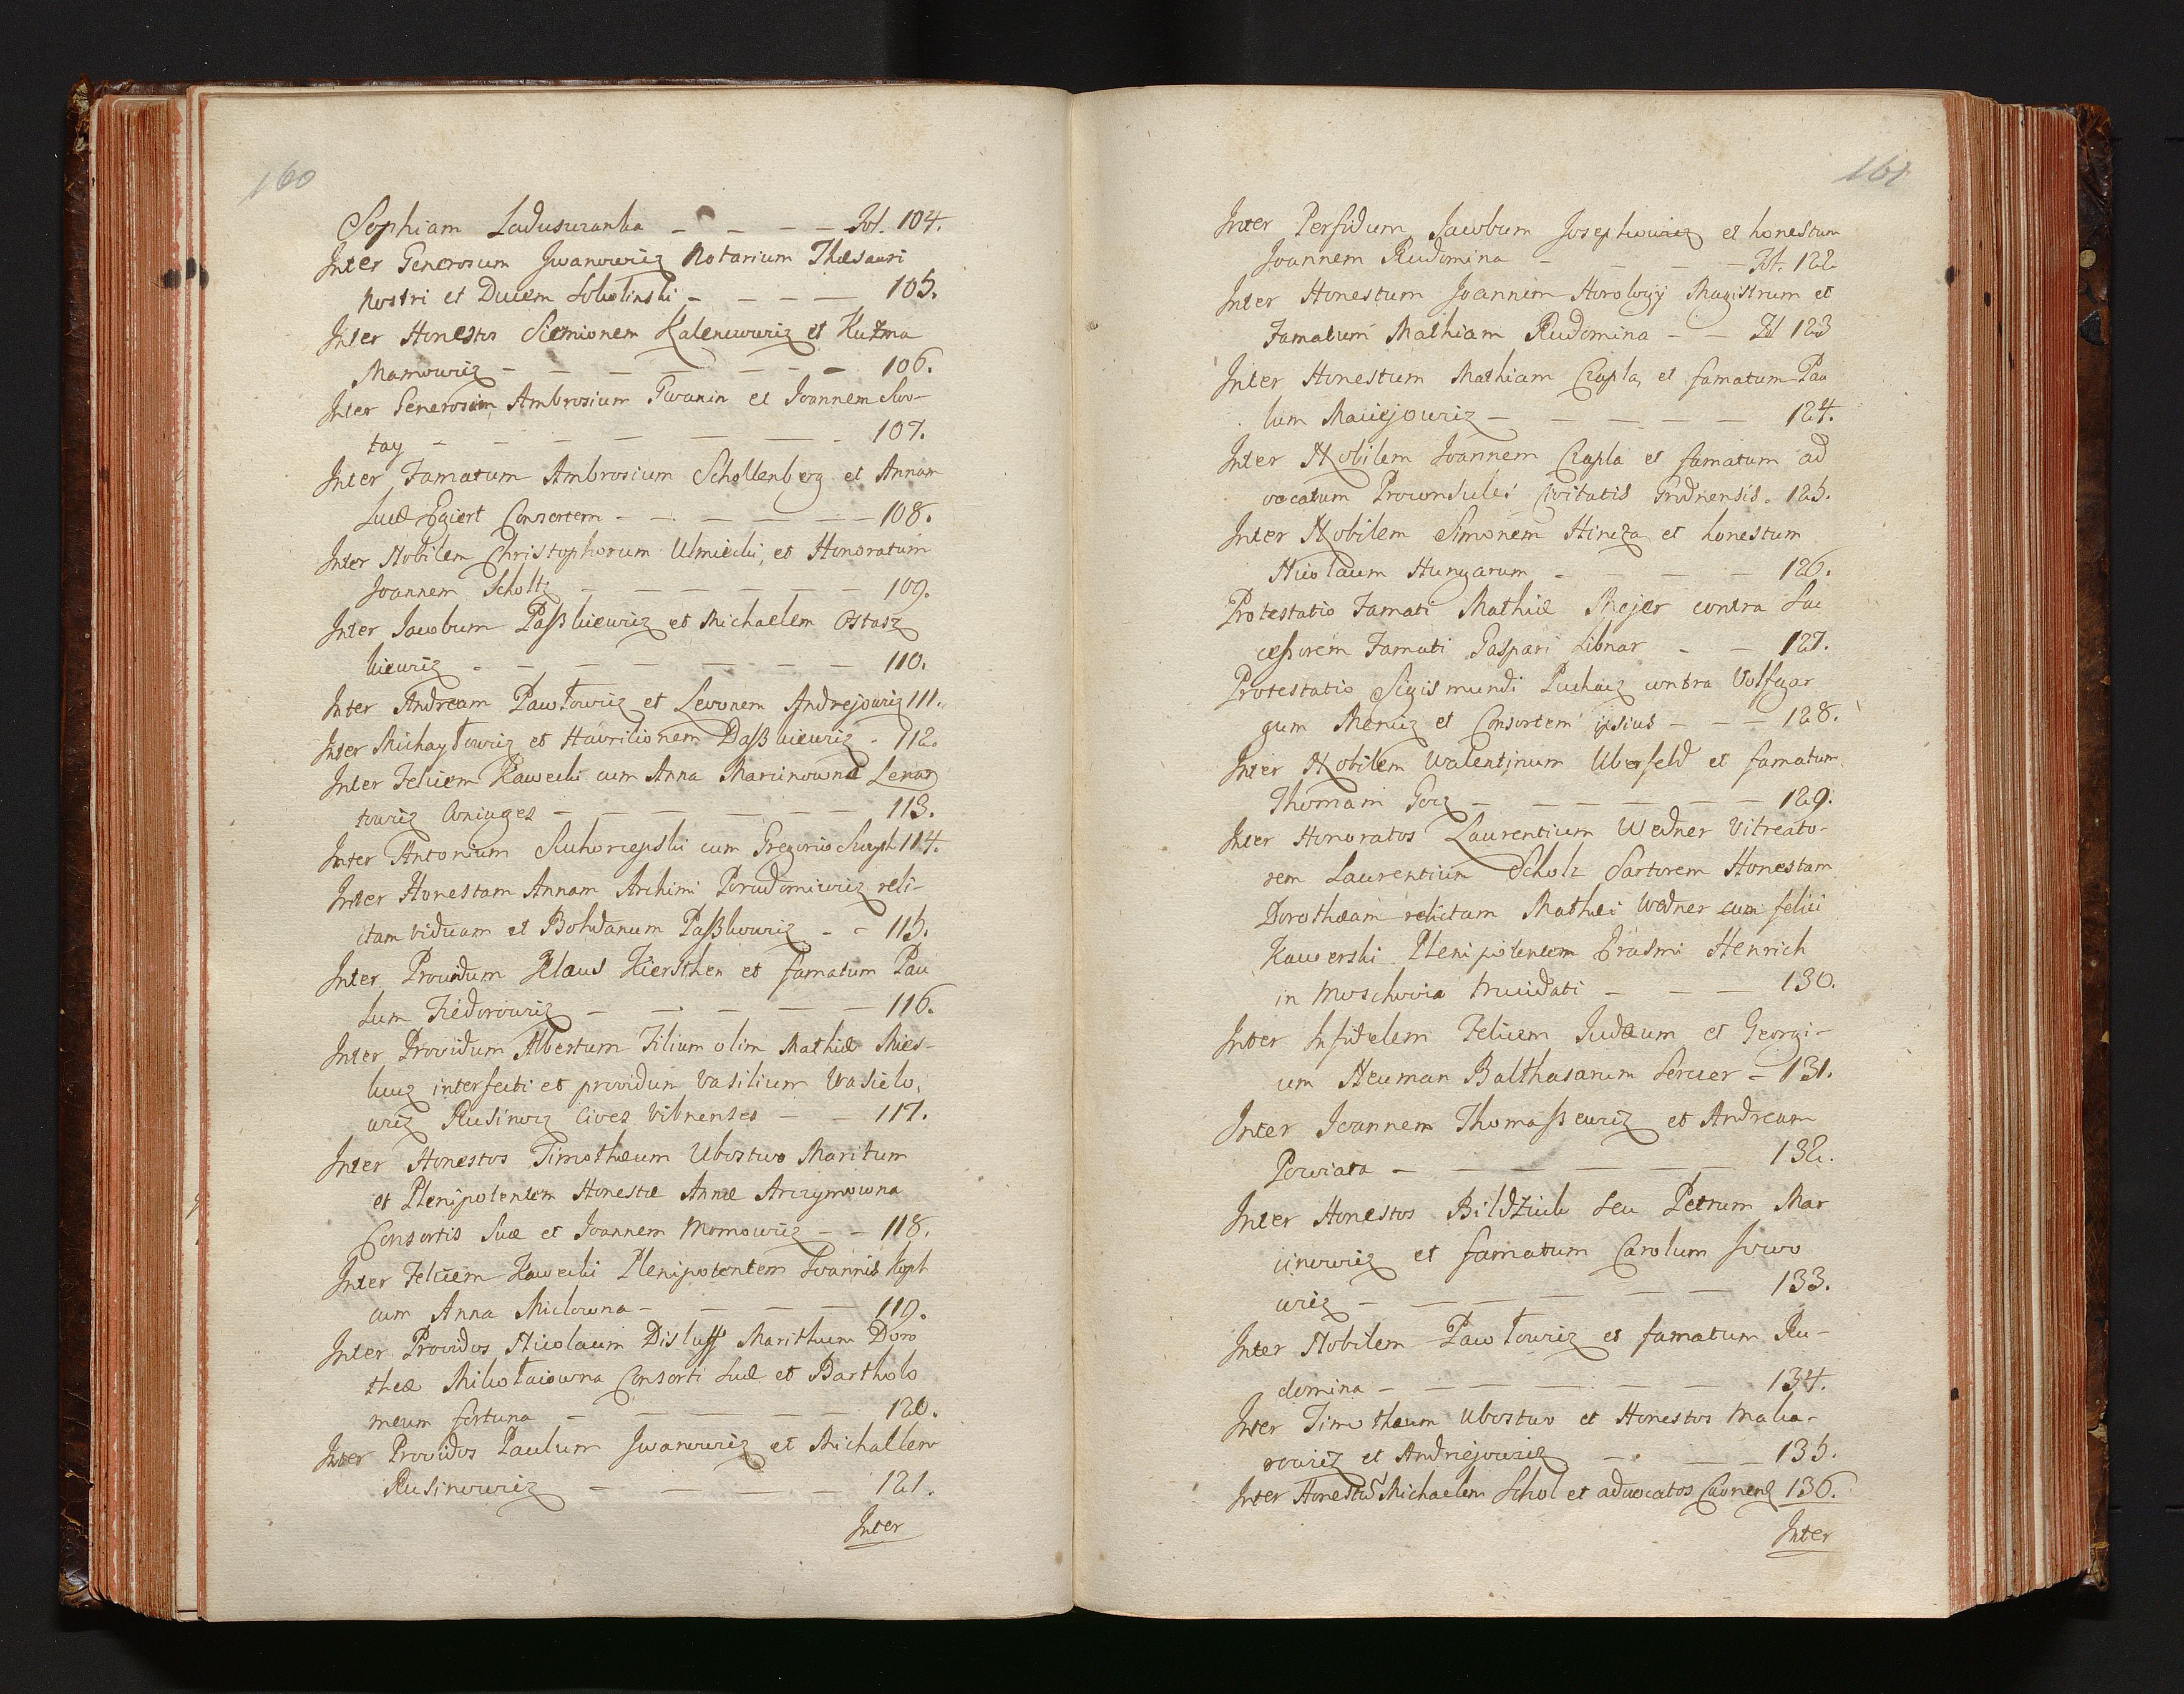 160
Sophiam Ladusuranka - - - - Fol. 104.
Inter Generosum Jwanowicz Notarium Thesauri
nostri et Ducem Sokolinski - - - - 105.
Inter Honestos Siemionem Kalenowicz et Kuzma
Mamowicz - - - - - - 106.
Inter Generosum Ambrosium Gwanin et Joannem Slo-
tay - - - - - - - 107.
Inter Famatum Ambrosium Schollenberg et Annam
Lucæ Egiert Consortem - - - - - - 108.
Inter Nobilem Christophorum Ulmiecki, et Honoratum
Joannem Scholtz - - - - - - 109.
Inter Jacobum Paßkiewicz et Michaelem Ostasz
kiewicz - - - - - - - 110.
Inter Andream Pawłowicz et Levonem Andrejowicz 111.
Inter Michayłowicz et Haurilionem Daßkiewicz - 112.
Inter Felicem Kawecki cum Anna Marcinowna Lenar
towicz Coniuges - - - - - - 113.
Inter Antonium Suhorzepski cum Gregorio 114.
Inter Honestam Annam Archimi Porudomicwicz reli-
ctam viduam et Bohdanum Paßkowicz - - 115.
Inter Providum Klaus Kiersthen et famatum Pau
lum Fiedorowicz - - - - - 116.
Inter Providum Albertum Filium olim Mathiæ Mies-
kucz interfecti et providum Vasilium Wasielo,
wicz Rusinocz Cives Vilnenses - - 117.
Inter Honestos Timotheum Ubostwo Maritum
et Plenipotentem Honestæ Annæ Arczymowna
Consortis Suæ et Joannem Momowicz - - 118.
Inter Felicem Kawecki Plenipotentem Joannis Kopt
cum Anna Miclowna - - - - 119.
Inter Providos Nicolaum Disluss Marithum Doro
theæ Mikołaiowna Consorti Suæ et Bartholo
meum fortuna - - - - 120.
Inter Providos Paulum Jwanowicz et Michallem
Rusinowicz - - - - - 121.
Inter
161
Inter Perfidum Jacobum Josephowicz et honestum
Joannem Rudomina - - - - Fol. 122
Inter Honestum Joannem Horologij Magistrum et
Famatum Mathiam Rudomina - - Fol 123
Inter Honestum Mathiam Czapla, et famatum Pau
lum Maciejowicz - - - - - 124.
Inter Nobilem Joannem Czapla et famatum ad
vocatum Proconsulis Civitatis Grodnensis. 125.
Inter Nobilem Simonem Hincza et honestum
Nicolaum Hungarum - - - - 126.
Protestatio Famati Mathiæ Mejer contra Suc
cessorem Famati Gaspari Libnar - - 127.
Protestatio Sigismundi Puchacz contra Volfgar
gum Mencz et Consortem ipsius - - - 128.
Inter Nobilem Walentinum Uberfeld et famatum
Thomam Gocz - - - - - - 129.
Inter Honoratos Laurentium Wedner Vitreato-
rem Laurentium Scholz Sartorem Honestam
Dorotheam relictam Mathei Wedner cum felici
Kawerski Plenipotentem Erasmi Henrich
in Moschovia trucidati - - - 130.
Inter Infidelem Felicem Judæum et Georgi-
um Neuman Balthasarum Sercier - 131.
Inter Joannem Thomaßewicz et Andream
Powiata - - - - - - 132.
Inter Honestos Bildziuk seu Petrum Mar
cinowicz et famatum Carolum Jwo
wicz - - - - - - 133.
Inter Nobilem Pawłowicz et famatum Ru-
domina - - - - - - 134.
Inter Timotheum Ubostwo et Honestos Maka-
rowicz et Andriejowicz - - - - 135.
Inter Honestos Michaelem Schol et advocatos 136.
Inter